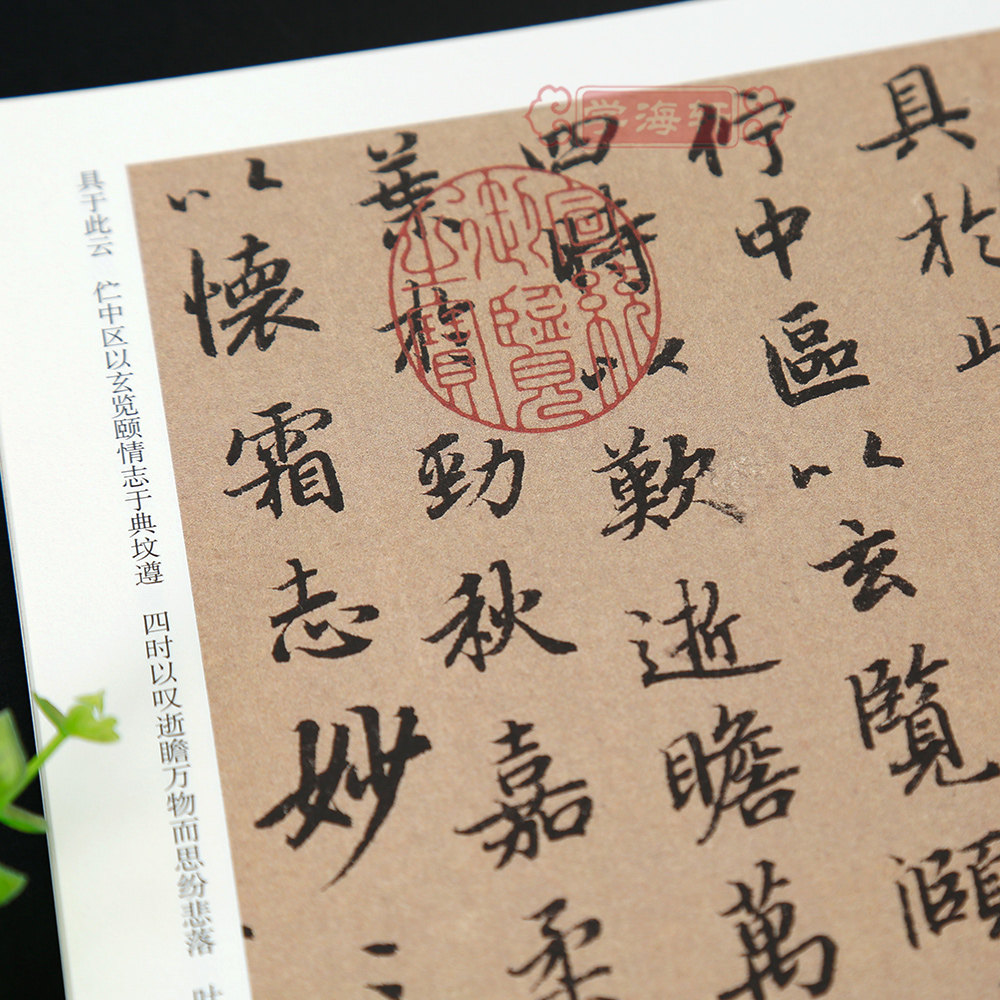 学海轩
具於此
佇中區以玄覽頤
四時以歎逝瞻萬
葉於勁秋嘉柔
以懷霜志妙
宣統御覽之寶
具于此云 伫中区以玄览颐情志于典坟遵 四时以叹逝瞻万物而思纷悲落 叶